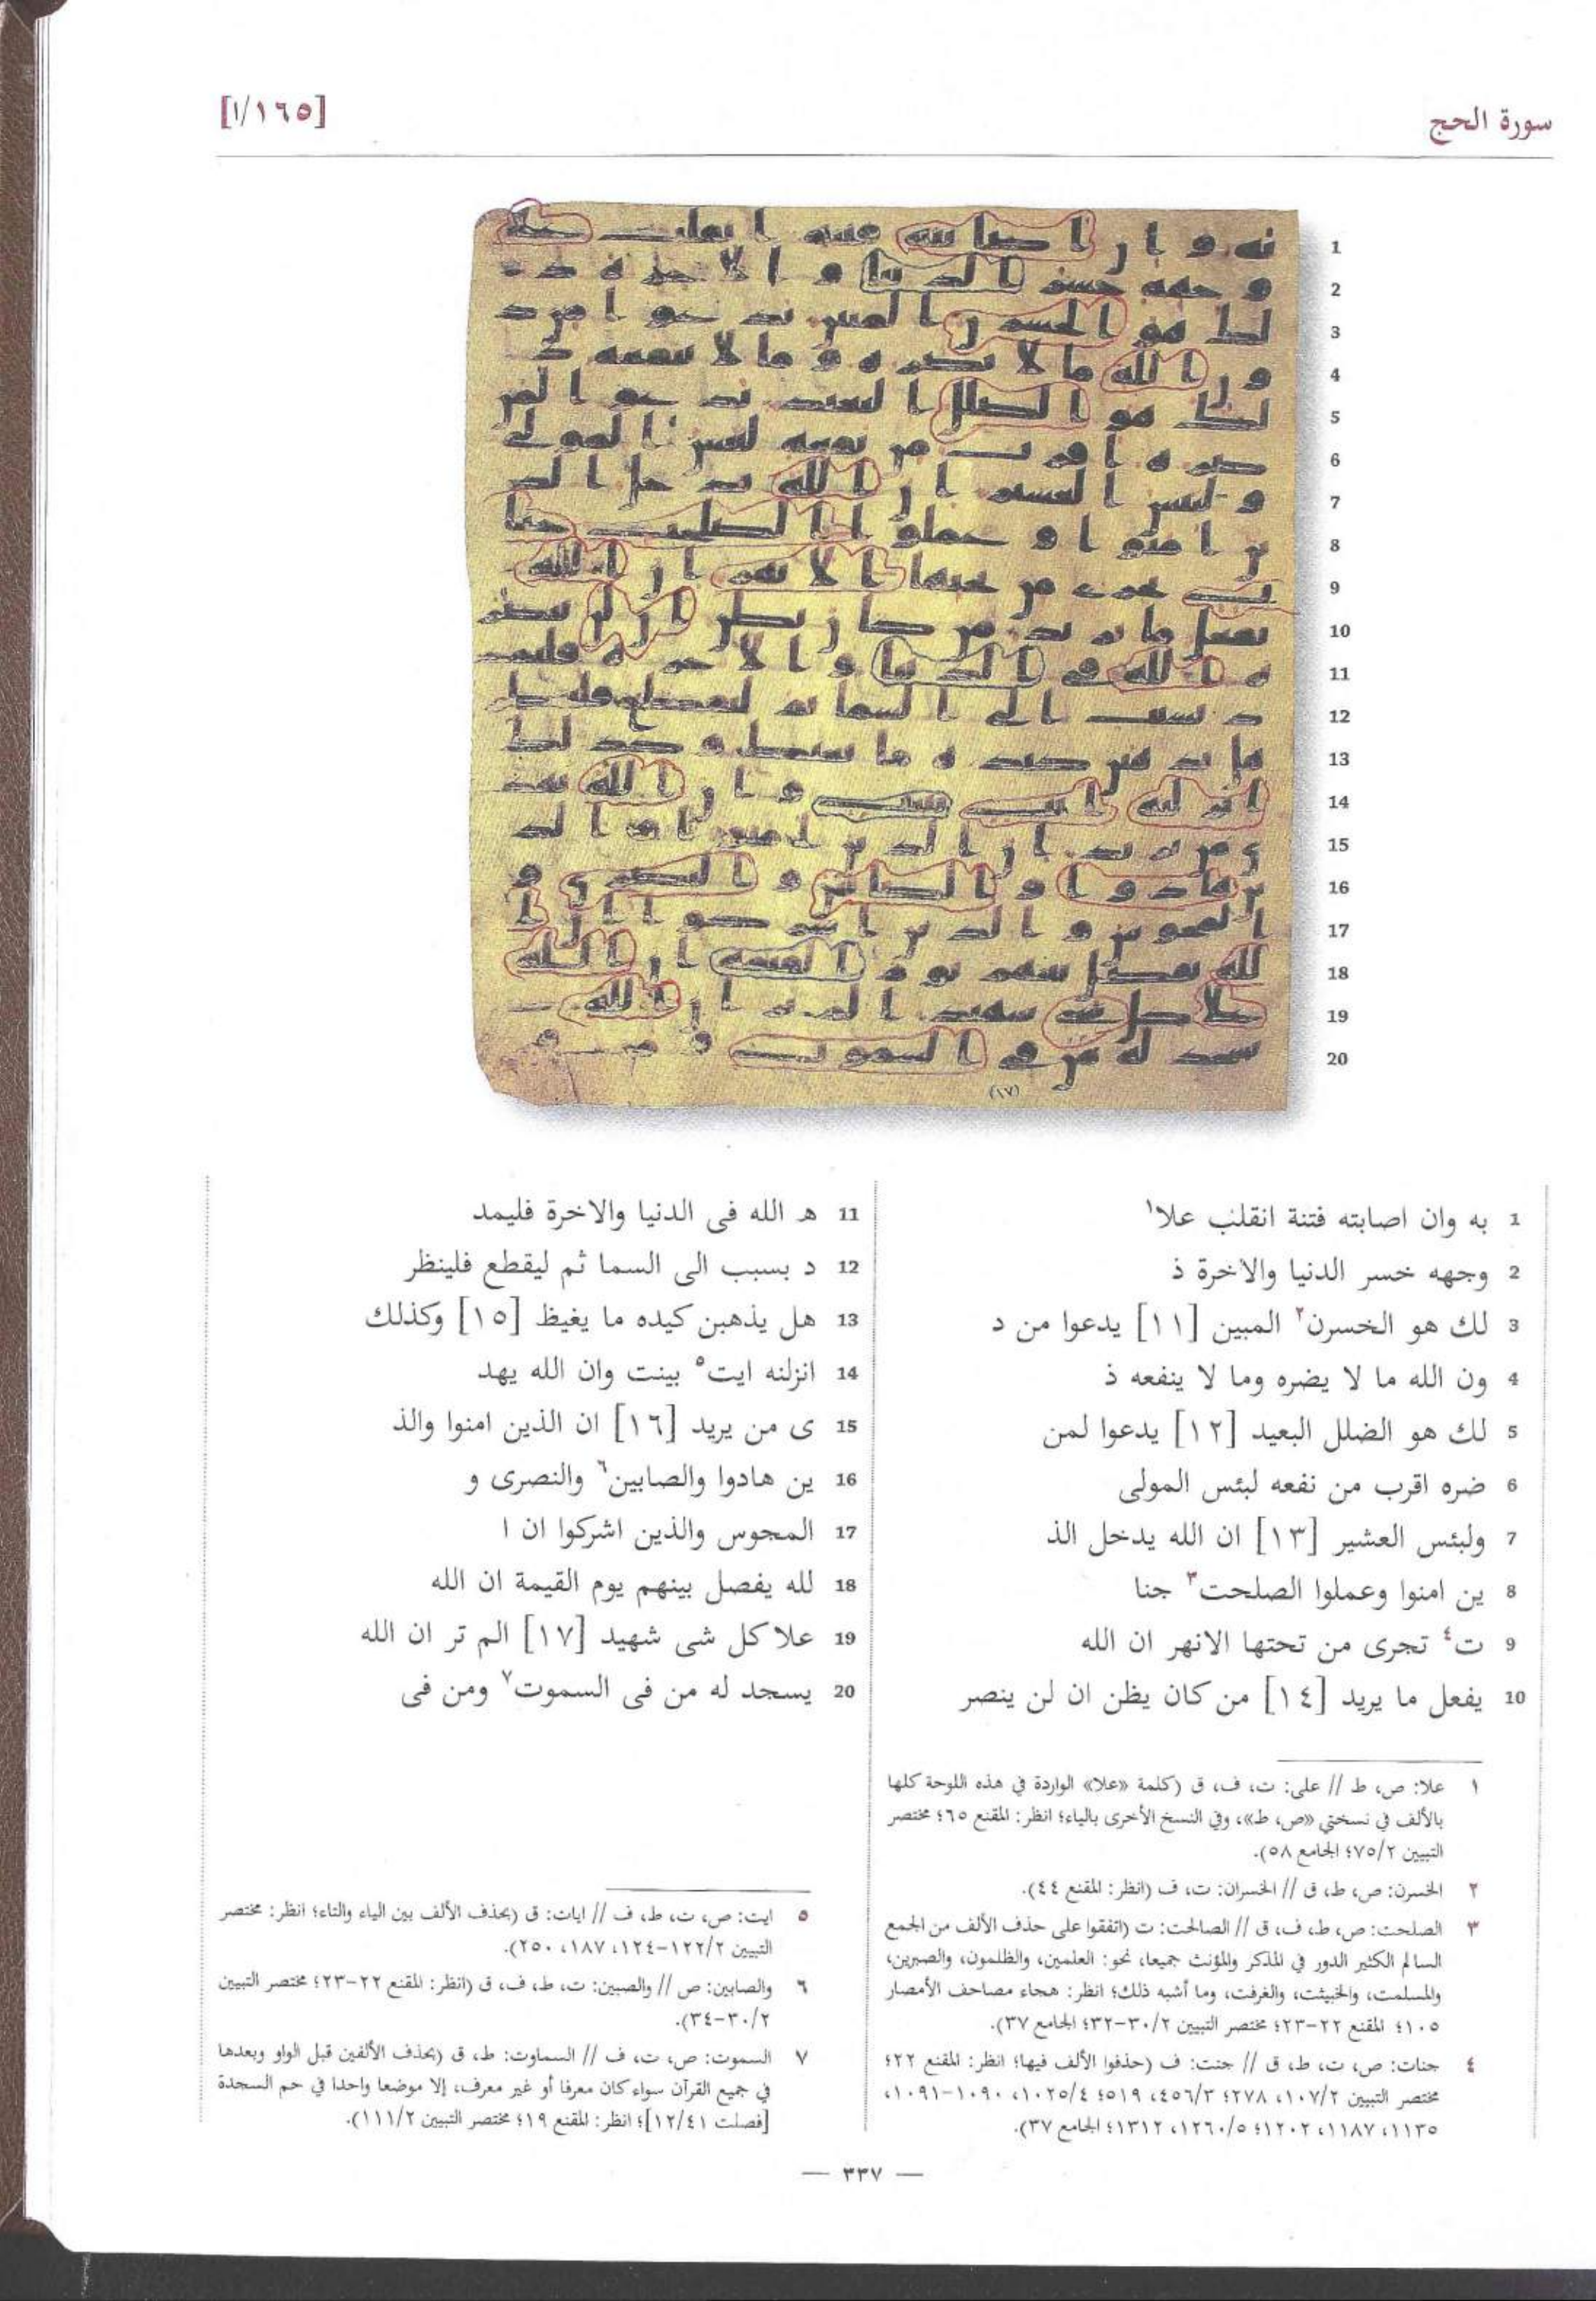 سورة الحج
[١٦٥/ا]
1 به وان اصابته فتنة انقلب علا١
2 وجهه خسر الدنيا والاخرة ذ
3 لك هو الخسرن٢ المبين [١١] يدعوا من د
4 ون الله ما لا يضره وما لا ينفعه ذ
5 لك هو الضلل البعيد [١٢] يدعوا لمن
6 ضره اقرب من نفعه لبئس المولى
7 ولبئس العشير [١٣] ان الله يدخل الذ
8 ين امنوا وعملوا الصلحت٣ جنا
9 ت٤ تجرى من تحتها الانهر ان الله
10 يفعل ما يريد [١٤] من كان يظن ان لن ينصر
11 ه الله فى الدنيا والاخرة فليمد
12 د بسبب الى السما ثم ليقطع فلينظر
13 هل يذهبن كيده ما يغيظ [١٥] وكذلك
14 انزلنه ايت٥ بينت وان الله يهد
15 ى من يريد [١٦] ان الذين امنوا والذ
16 ين هادوا والصابين٦ والنصرى و
17 المجوس والذين اشركوا ان ا
18 لله يفصل بينهم يوم القيمة ان الله
19 علا كل شى شهيد [١٧] الم تر ان الله
20 يسجد له من فى السموت٧ ومن فى
١ علا: ص، ط // على: ت، ف، ق (كلمة «علا» الواردة في هذه اللوحة كلها
بالألف في نسختي «ص، ط»، وفي النسخ الأخرى بالياء؛ انظر: المقنع ٦٥؛ مختصر
التبيين ٧٥/٢؛ الجامع ٥٨).
٢ الخسرن: ص، ط، ق // الخسران: ت، ف (انظر: المقنع ٤٤).
٣ الصلحت: ص، ط، ف، ق // الصالحت: ت (اتفقوا على حذف الألف من الجمع
السالم الكثير الدور في المذكر والمؤنث جميعا، نحو: العلمين، والظلمون، والصبرين،
والمسلمت، والخبيثت، والغرفت، وما أشبه ذلك؛ انظر: هجاء مصاحف الأمصار
١٠٥؛ المقنع ٢٢-٢٣؛ مختصر التبيين ٣٠/٢-٣٢؛ الجامع ٣٧).
٤ جنات: ص، ت، ط، ق // جنت: ف (حذفوا الألف فيها؛ انظر: المقنع ٢٢؛
مختصر التبيين ١٠٧/٢، ٢٧٨؛ ٤٥٦/٣، ٥١٩؛ ١٠٢٥/٤، ١٠٩٠-١٠٩١،
١١٣٥، ١١٨٧، ١٢٠٢؛ ١٢٦٠/٥، ١٣١٢؛ الجامع ٣٧).
٥ ايت: ص، ت، ط، ف // ايات: ق (بحذف الألف بين الياء والتاء؛ انظر: مختصر
التبيين ١٢٢/٢-١٢٤، ١٨٧، ٢٥٠).
٦ والصابين: ص // والصبين: ت، ط، ف، ق (انظر: المقنع ٢٢-٢٣؛ مختصر التبيين
٣٠/٢-٣٤).
٧ السموت: ص، ت، ف // السماوت: ط، ق (بحذف الألفين قبل الواو وبعدها
في جميع القرآن سواء كان معرفا أو غير معرف، إلا موضعا واحدا في حم السجدة
[فصلت ١٢/٤١]؛ انظر: المقنع ١٩؛ مختصر التبيين ١١١/٢).
— ٣٣٧ —